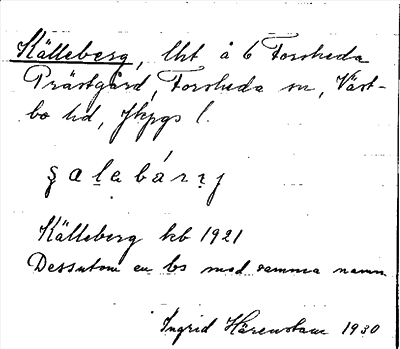 Källeberg, lht å 6 Forsheda
Prästgård, Forsheda sn, Väst-
bo hd, Jkpgs l.
Källeberg kb 1921
Dessutom en bs med samma namn
Ingrid Härenstam 1930